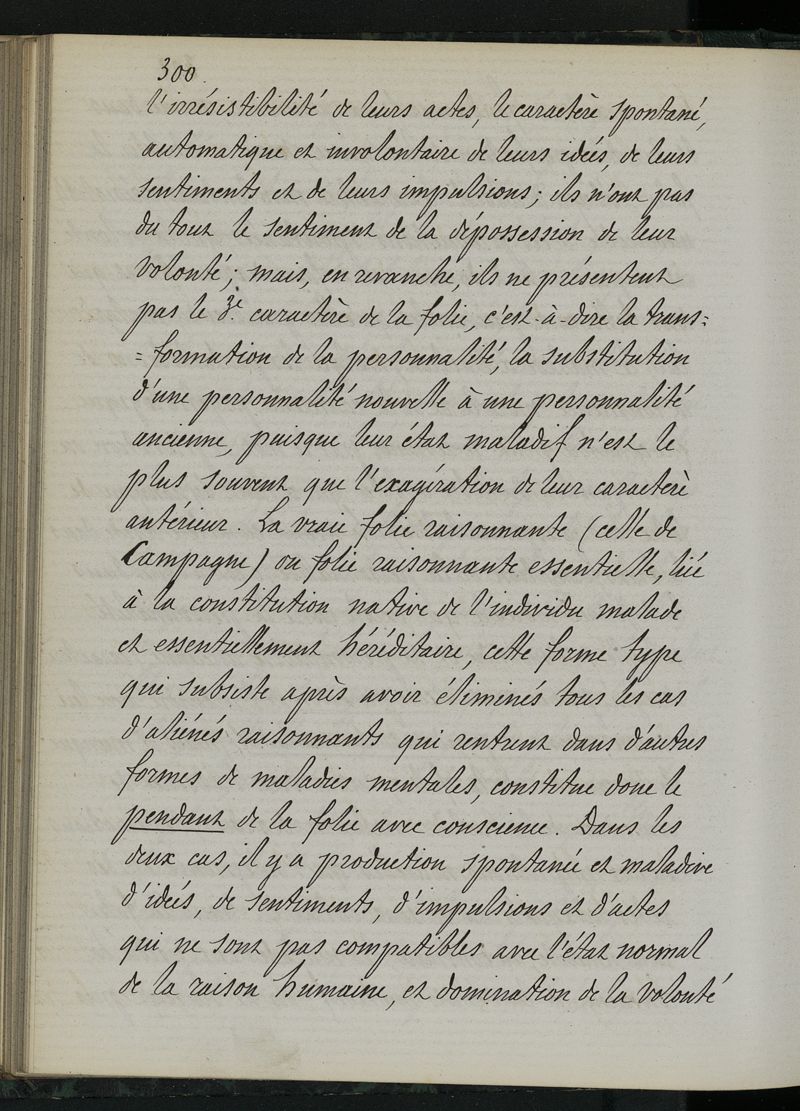 300.
l'irrésistibilité de leurs actes, le caractère spontané,
automatique et involontaire de leurs idées, de leurs
sentiments et de leurs impulsions; ils n'ont pas
du tout le sentiment de la dépossession de leur
volonté; mais, en revanche, ils ne présentent
pas le 3e caractère de la folie, c'est-à-dire la trans=
=formation de la personnalité, la substitution
d'une personnalité nouvelle à une personnalité
ancienne, puisque leur état maladif n'est le
plus souvent que l'exagération de leur caractère
antérieur. La vraie folie raisonnante (celle de
Campagne) ou folie raisonnante essentielle, liée
à la constitution native de l'individu malade
et essentiellement héréditaire, cette forme type
qui subsiste après avoir éliminés tous les cas
d'aliénés raisonnants qui rentrent dans d'autres
formes de maladies mentales, constitue donc le
pendant de la folie avec conscience. Dans les
deux cas, il y a production spontanée et maladive
d'idées, de sentiments, d'impulsions et d'actes
qui ne sont pas compatibles avec l'état normal
de la raison humaine, et domination de la volonté